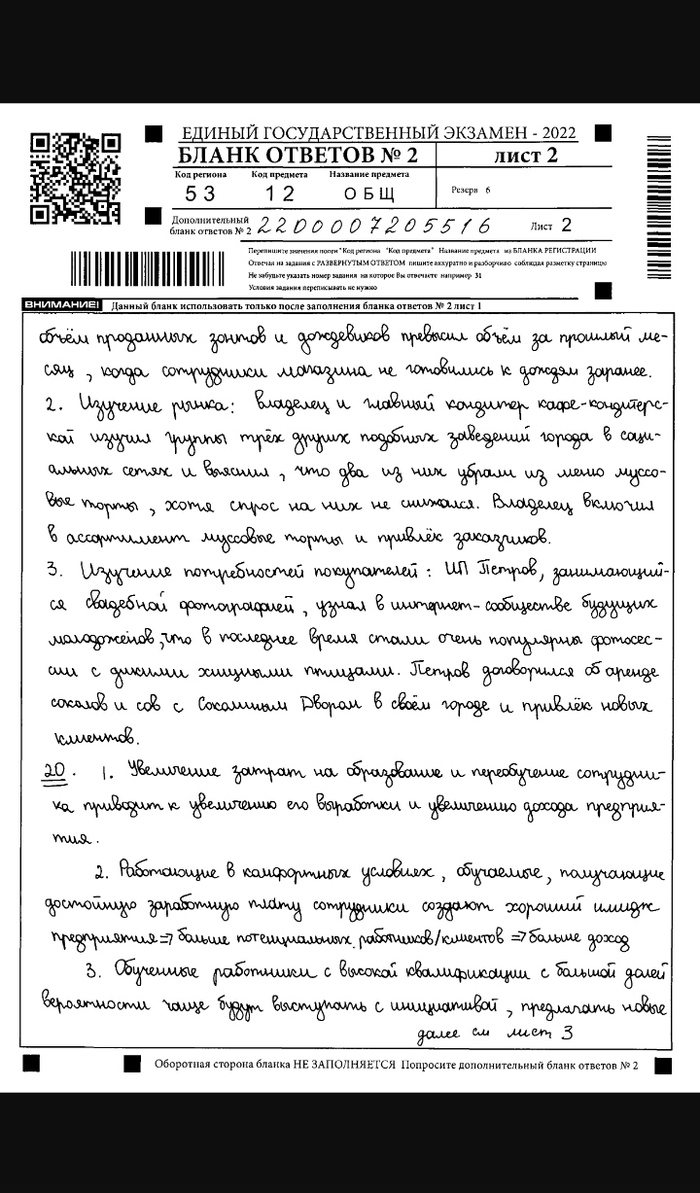 ЕДИНЫЙ ГОСУДАРСТВЕННЫЙ ЭКЗАМЕН - 2022
БЛАНК ОТВЕТОВ № 2
лист 2
Код региона Код предмета Название предмета
53 12 ОБЩ
Резерв 6
Дополнительный бланк ответов № 2 2200007205516 Лист 2
Перепишите значения полей "Код региона" "Код предмета" Название предмета из БЛАНКА РЕГИСТРАЦИИ
Отвечая на задания с РАЗВЕРНУТЫМ ОТВЕТОМ пишите аккуратно и разборчиво соблюдая разметку страницы
Не забудьте указать номер задания на которое Вы отвечаете например 31
Условия задания переписывать не нужно
ВНИМАНИЕ! Данный бланк использовать только после заполнения бланка ответов № 2 лист 1
объём проданных зонтов и дождевиков превысил объём за прошлый ме-
сяц, когда сотрудники магазина не готовились к дождям заранее.
2. Изучение рынка: владелец и главный кондитер кафе-кондитерс-
кой изучил группы трёх других подобных заведений города в соци-
альных сетях и выяснил, что два из них убрали из меню муссо-
вые торты, хотя спрос на них не снижался. Владелец включил
в ассортимент муссовые торты и привлёк заказчиков.
3. Изучение потребностей покупателей: ИП Петров, занимающий-
ся свадебной фотографией, узнал в интернет-сообществе будущих
молодожёнов, что в последнее время стали очень популярны фотосес-
сии с дикими хищными птицами. Петров договорился об аренде
соколов и сов с Соколиным Двором в своём городе и привлёк новых
клиентов.
20. 1. Увеличение затрат на образование и переобучение сотрудни-
ка приводит к увеличению его выработки и увеличению дохода предприя-
тия.
2. Работающие в комфортных условиях, обучаемые, получающие
достойную заработную плату сотрудники создают хороший имидж
предприятия => больше потенциальных работников/клиентов => больше доход
3. Обученные работники с высокой квалификации с большой долей
вероятности чаще будут выступать с инициативой, предлагать новые
далее см лист 3
Оборотная сторона бланка НЕ ЗАПОЛНЯЕТСЯ Попросите дополнительный бланк ответов № 2